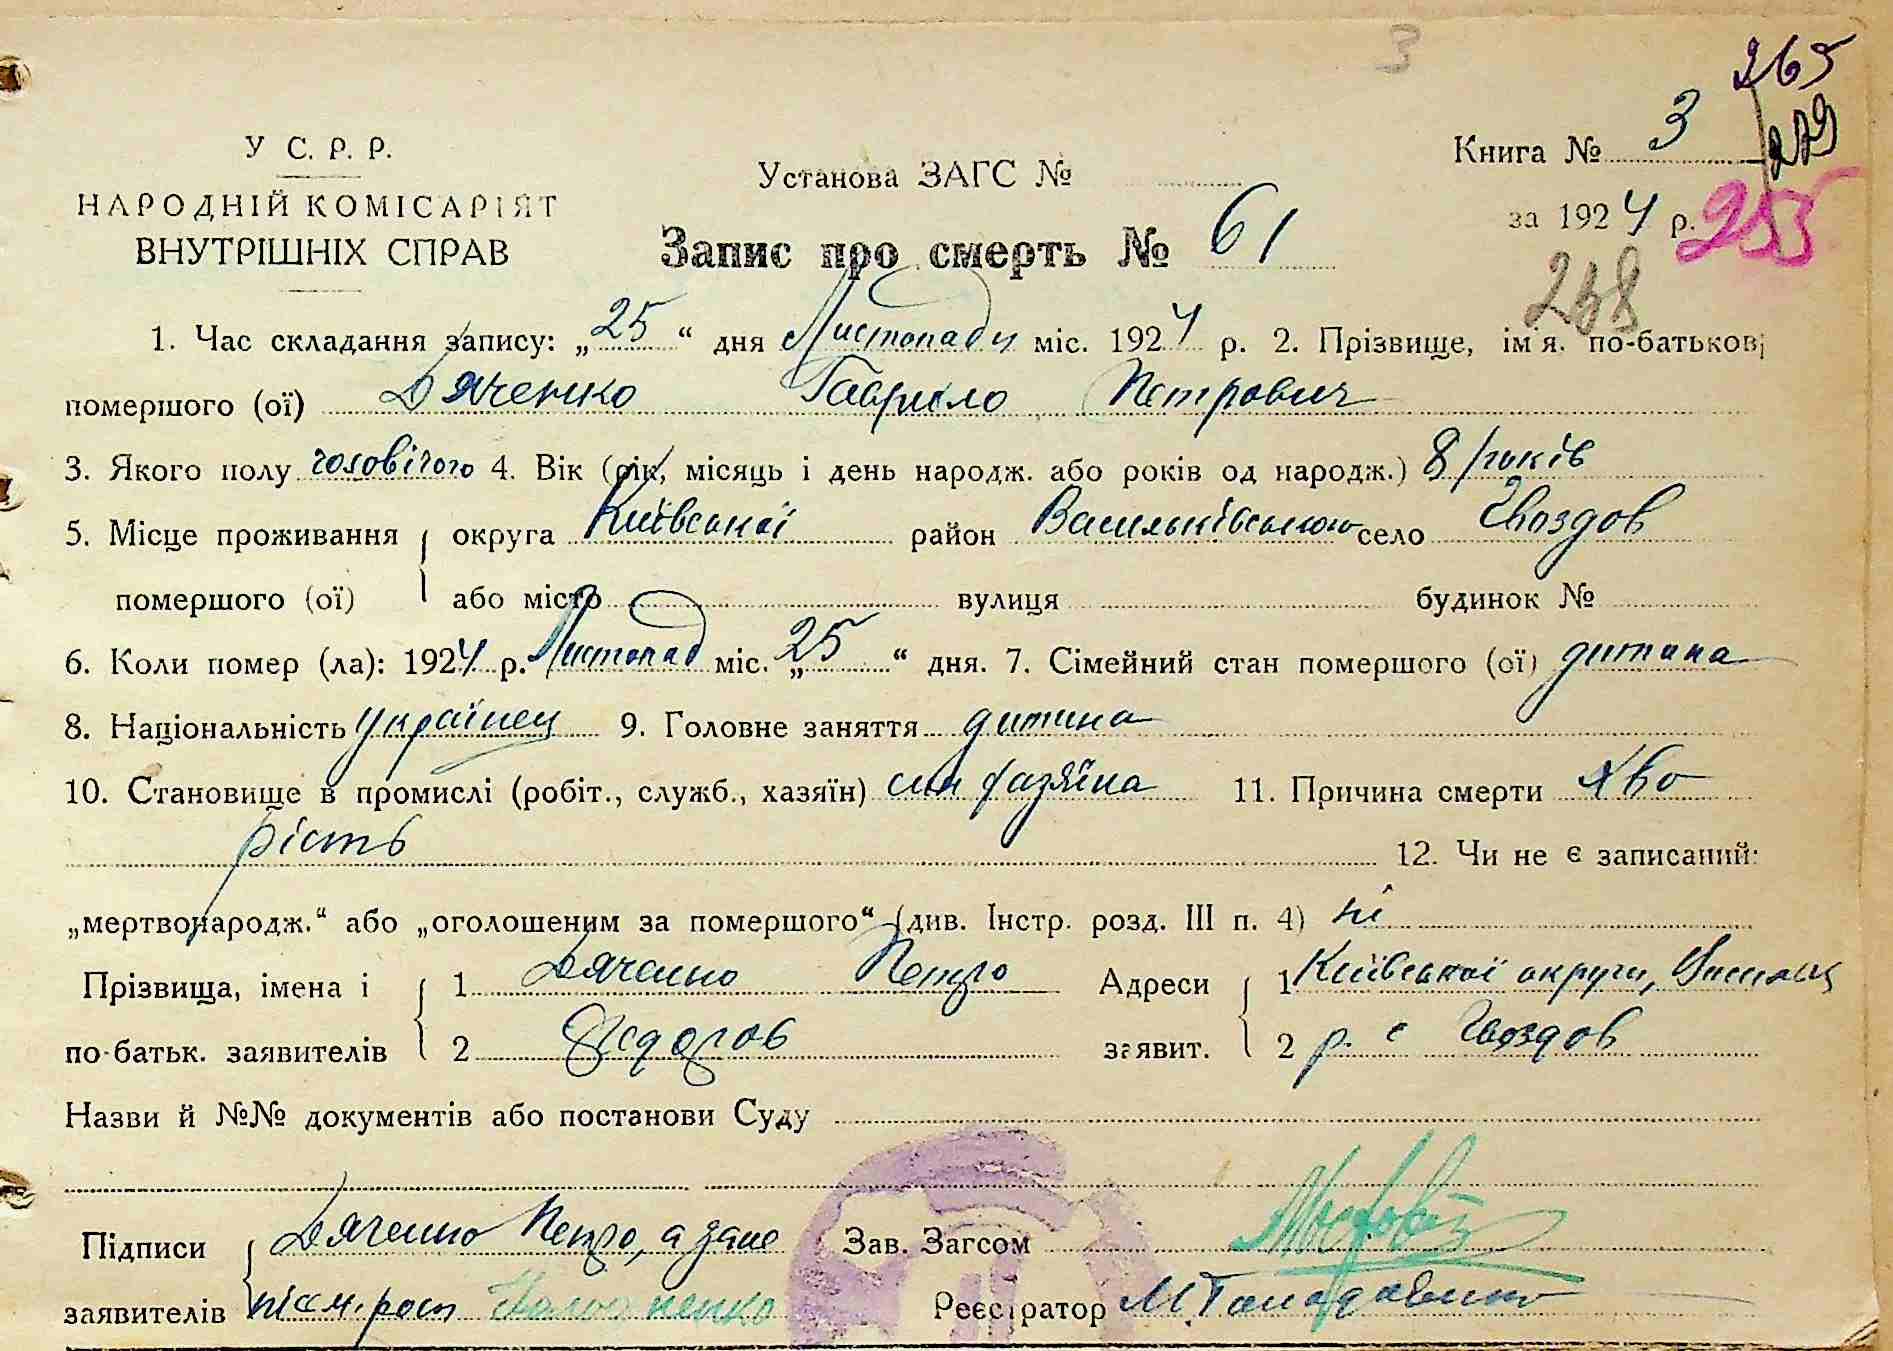 3
265
279
У С. Р. Р.
НАРОДНІЙ КОМІСАРІЯТ
ВНУТРІШНІХ СПРАВ
Установа ЗАГС №
Книга № 3
за 1924 р. 255
Запис про смерть № 61
258
1. Час складання запису: „25“ дня Листопаду міс. 1924 р. 2. Прізвище, імя. по-батькові
помершого (ої) Дяченко Гаврило Петрович
3. Якого полу чоловічого 4. Вік (рік, місяць і день народж. або років од народж.) 8 років
5. Місце проживання округа Київської район Васильківського село Гвоздов
помершого (ої) або місто вулиця будинок №
6. Коли помер (ла): 1924 р. Листопад міс. „25“ дня. 7. Сімейний стан помершого (ої) дитина
8. Національність українец 9. Головне заняття дитина
10. Становище в промислі (робіт., служб., хазяїн) син хазяїна 11. Причина смерти хво
рість 12. Чи не є записаний:
„мертвонародж.“ або „оголошеним за помершого“ (див. Інстр. розд. III п. 4) ні
Прізвища, імена і 1 Дяченко Петро Адреси 1 Київської округи,
по-батьк. заявителів 2 Федоров заявит. 2 р. с Гвоздов
Назви й №№ документів або постанови Суду
Підписи Дяченко Петро, а за Зав. Загсом
заявителів Реєстратор М.